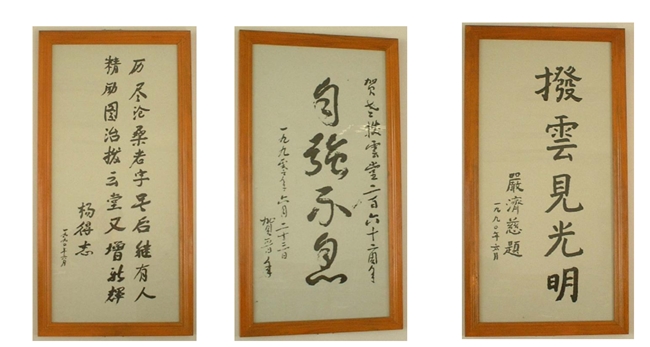 历尽沧桑老字号后继有人
精励图治拨云堂又增新辉
杨得志
一九九〇年六月
贺老拨云堂二百六十二周年
自强不息
一九九零年六月二十二日
贺晋年
撥雲見光明
嚴濟慈題
一九九〇年六月